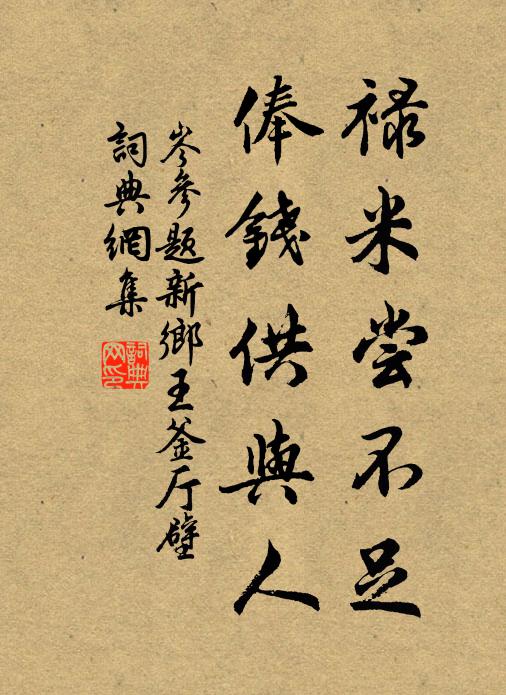 禄米尝不足
俸錢供與人
岑參题新鄉王釜厅壁
詞典網集
詞典
网印